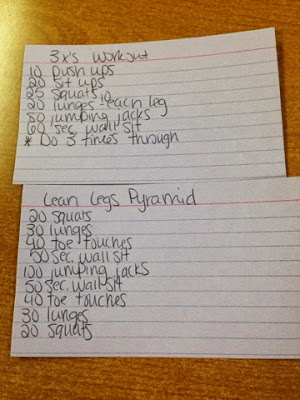 3x's Workout
10 push ups
20 sit ups
25 squats
20 lunges - each leg
80 jumping jacks
60 sec. wall sit
* Do 3 times through
Lean Legs Pyramid
20 squats
30 lunges
40 toe touches
50 sec. wall sit
100 jumping jacks
50 sec. wall sit
40 toe touches
30 lunges
20 squats